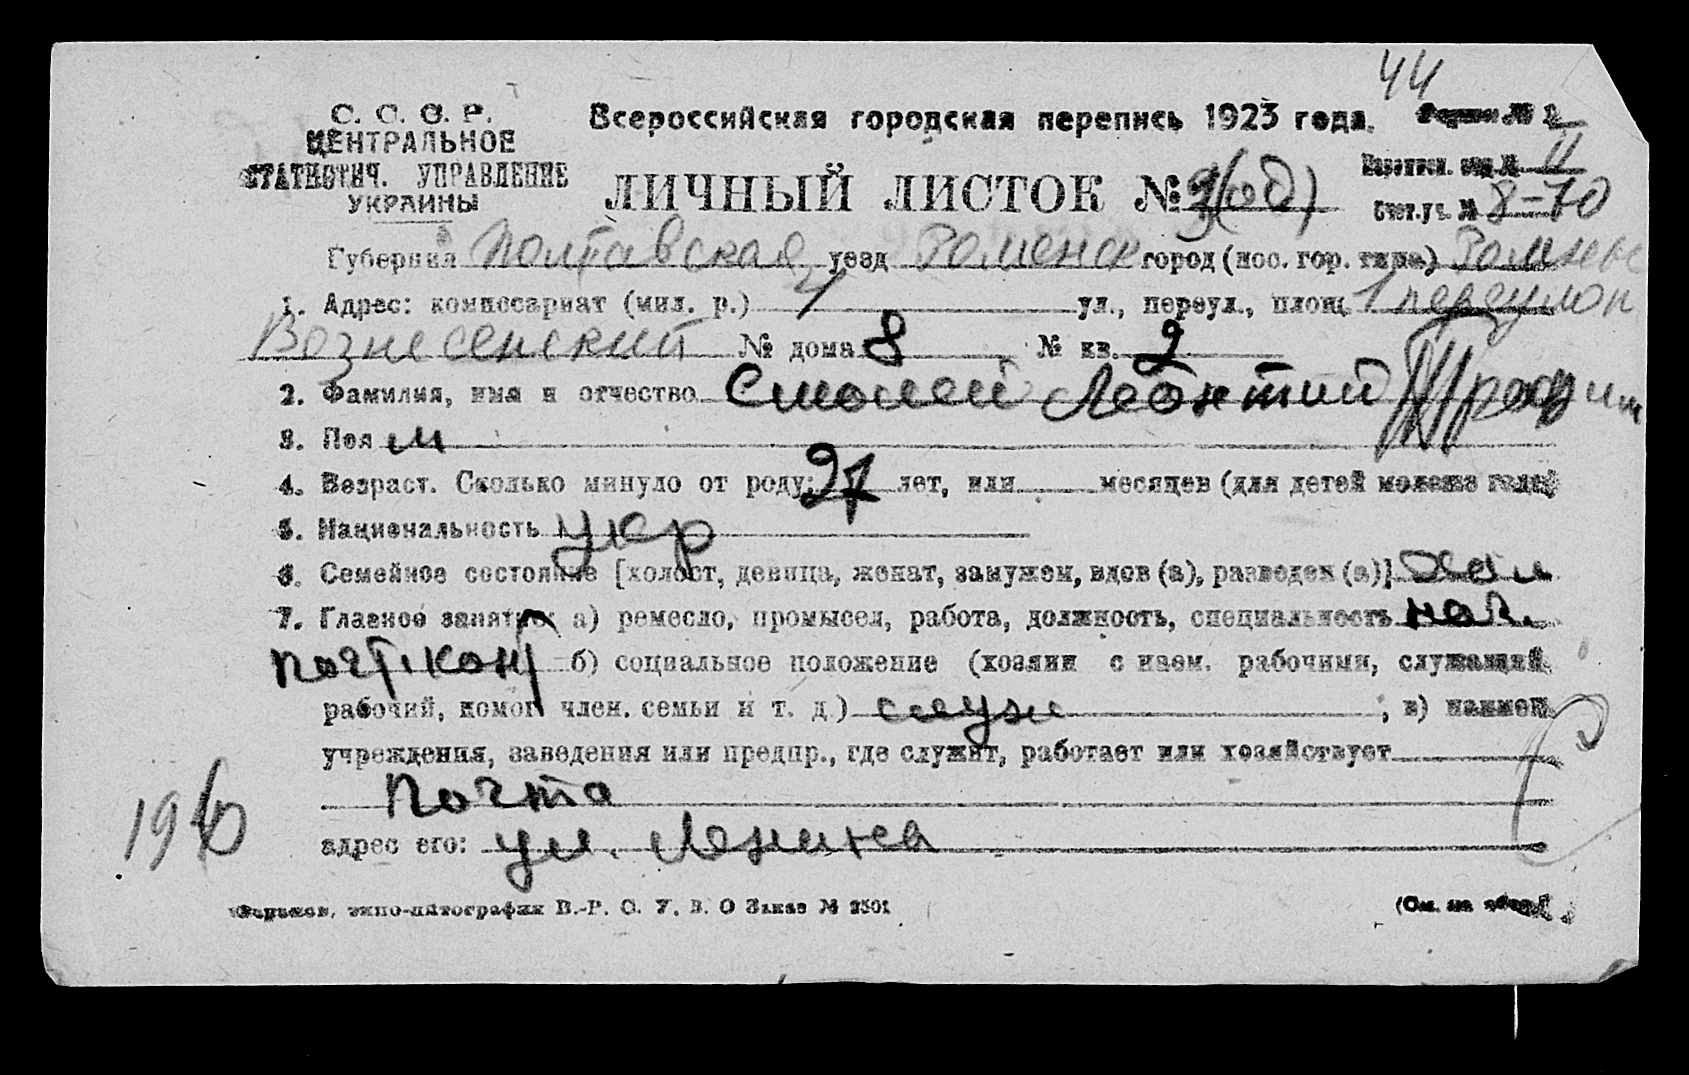 44
С. С. С. Р.
ЦЕНТРАЛЬНОЕ
СТАТИСТИЧ. УПРАВЛЕНИЕ
УКРАИНЫ
Всероссийская городская перепись 1923 года.
Форма № 2
ЛИЧНЫЙ ЛИСТОК №
Переписн. отд. № II
Счет. уч. № 8-70
Губерния Полтавская уезд Роменск город (пос. гор. типа) Ромны
1. Адрес: комиссариат (мил. р.) 1 ул., переул., площ. 1 переулок
Вознесенский № дома 8 № кв. 2
2. Фамилия, имя и отчество Смолей Леонтий
3. Пол м
4. Возраст. Сколько минуло от роду: 27 лет, или месяцев (для детей моложе года)
5. Национальность укр
6. Семейное состояние [холост, девица, женат, замужем, вдов (а), разведен (а)] хол
7. Главное занятие а) ремесло, промысел, работа, должность, специальность
почт. конт б) социальное положение (хозяин с наем. рабочими, служащий,
рабочий, помог. член. семьи и т. д.) служ ; в) наимен.
учреждения, заведения или предпр., где служит, работает или хозяйствует
Почта
адрес его: ул. Ленина
Харьков, типо-литография В.-Р. С. У. В. О Заказ № 2501
(См. на обор.)